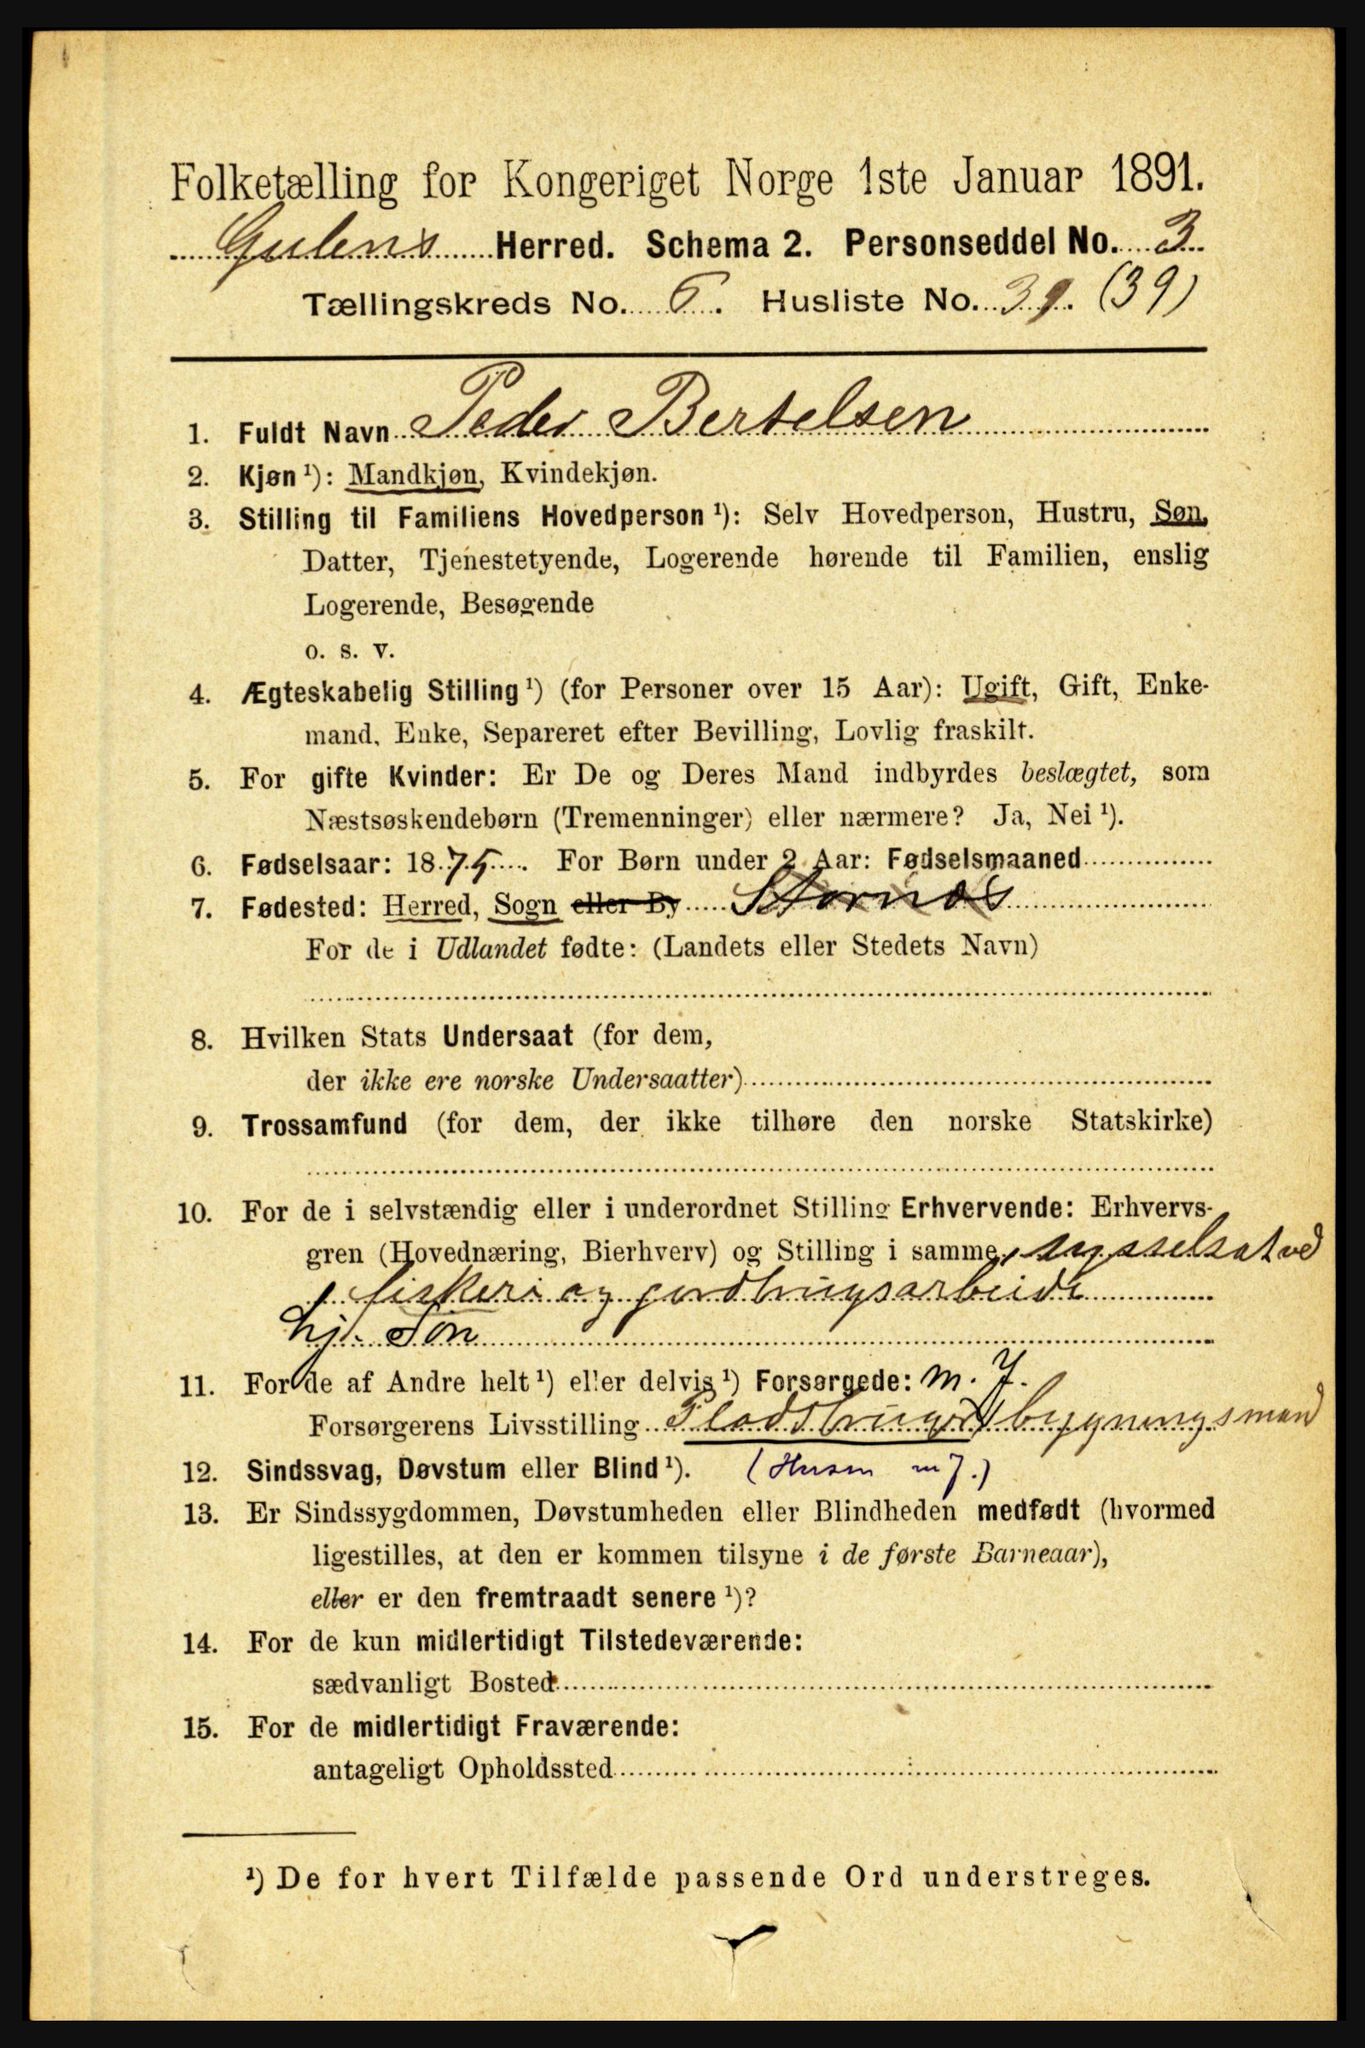 Folketælling for Kongeriget Norge 1ste Januar 1891.
Gulens Herred. Schema 2. Personseddel No. 3
Tællingskreds No. 6. Husliste No. 39. (39)
1. Fuldt Navn Peder Bertelsen
2. Kjøn ¹): Mandkjøn, Kvindekjøn.
3. Stilling til Familiens Hovedperson ¹): Selv Hovedperson, Hustru, Søn,
Datter, Tjenestetyende, Logerende hørende til Familien, enslig
Logerende, Besøgende
o. s. v.
4. Ægteskabelig Stilling ¹) (for Personer over 15 Aar): Ugift, Gift, Enke-
mand, Enke, Separeret efter Bevilling, Lovlig fraskilt.
5. For gifte Kvinder: Er De og Deres Mand indbyrdes beslægtet, som
Næstsøskendebørn (Tremenninger) eller nærmere? Ja, Nei ¹).
6. Fødselsaar: 1875. For Børn under 2 Aar: Fødselsmaaned
7. Fødested: Herred, Sogn eller By
For de i Udlandet fødte: (Landets eller Stedets Navn)
8. Hvilken Stats Undersaat (for dem,
der ikke ere norske Undersaatter)
9. Trossamfund (for dem, der ikke tilhøre den norske Statskirke)
10. For de i selvstændig eller i underordnet Stilling Erhvervende: Erhvervs-
gren (Hovednæring, Bierhverv) og Stilling i samme sysselsat ved
fiskeri og jordbrugsarbeide
hj. Søn
11. For de af Andre helt ¹) eller delvis ¹) Forsørgede: m. J.
Forsørgerens Livsstilling Pladsbruger bygningsmand
12. Sindssvag, Døvstum eller Blind ¹). (Husm m J.)
13. Er Sindssygdommen, Døvstumheden eller Blindheden medfødt (hvormed
ligestilles, at den er kommen tilsyne i de første Barneaar),
eller er den fremtraadt senere ¹)?
14. For de kun midlertidigt Tilstedeværende:
sædvanligt Bosted
15. For de midlertidigt Fraværende:
antageligt Opholdssted
¹) De for hvert Tilfælde passende Ord understreges.